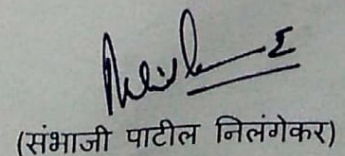 (संभाजी पाटील निलंगेकर)